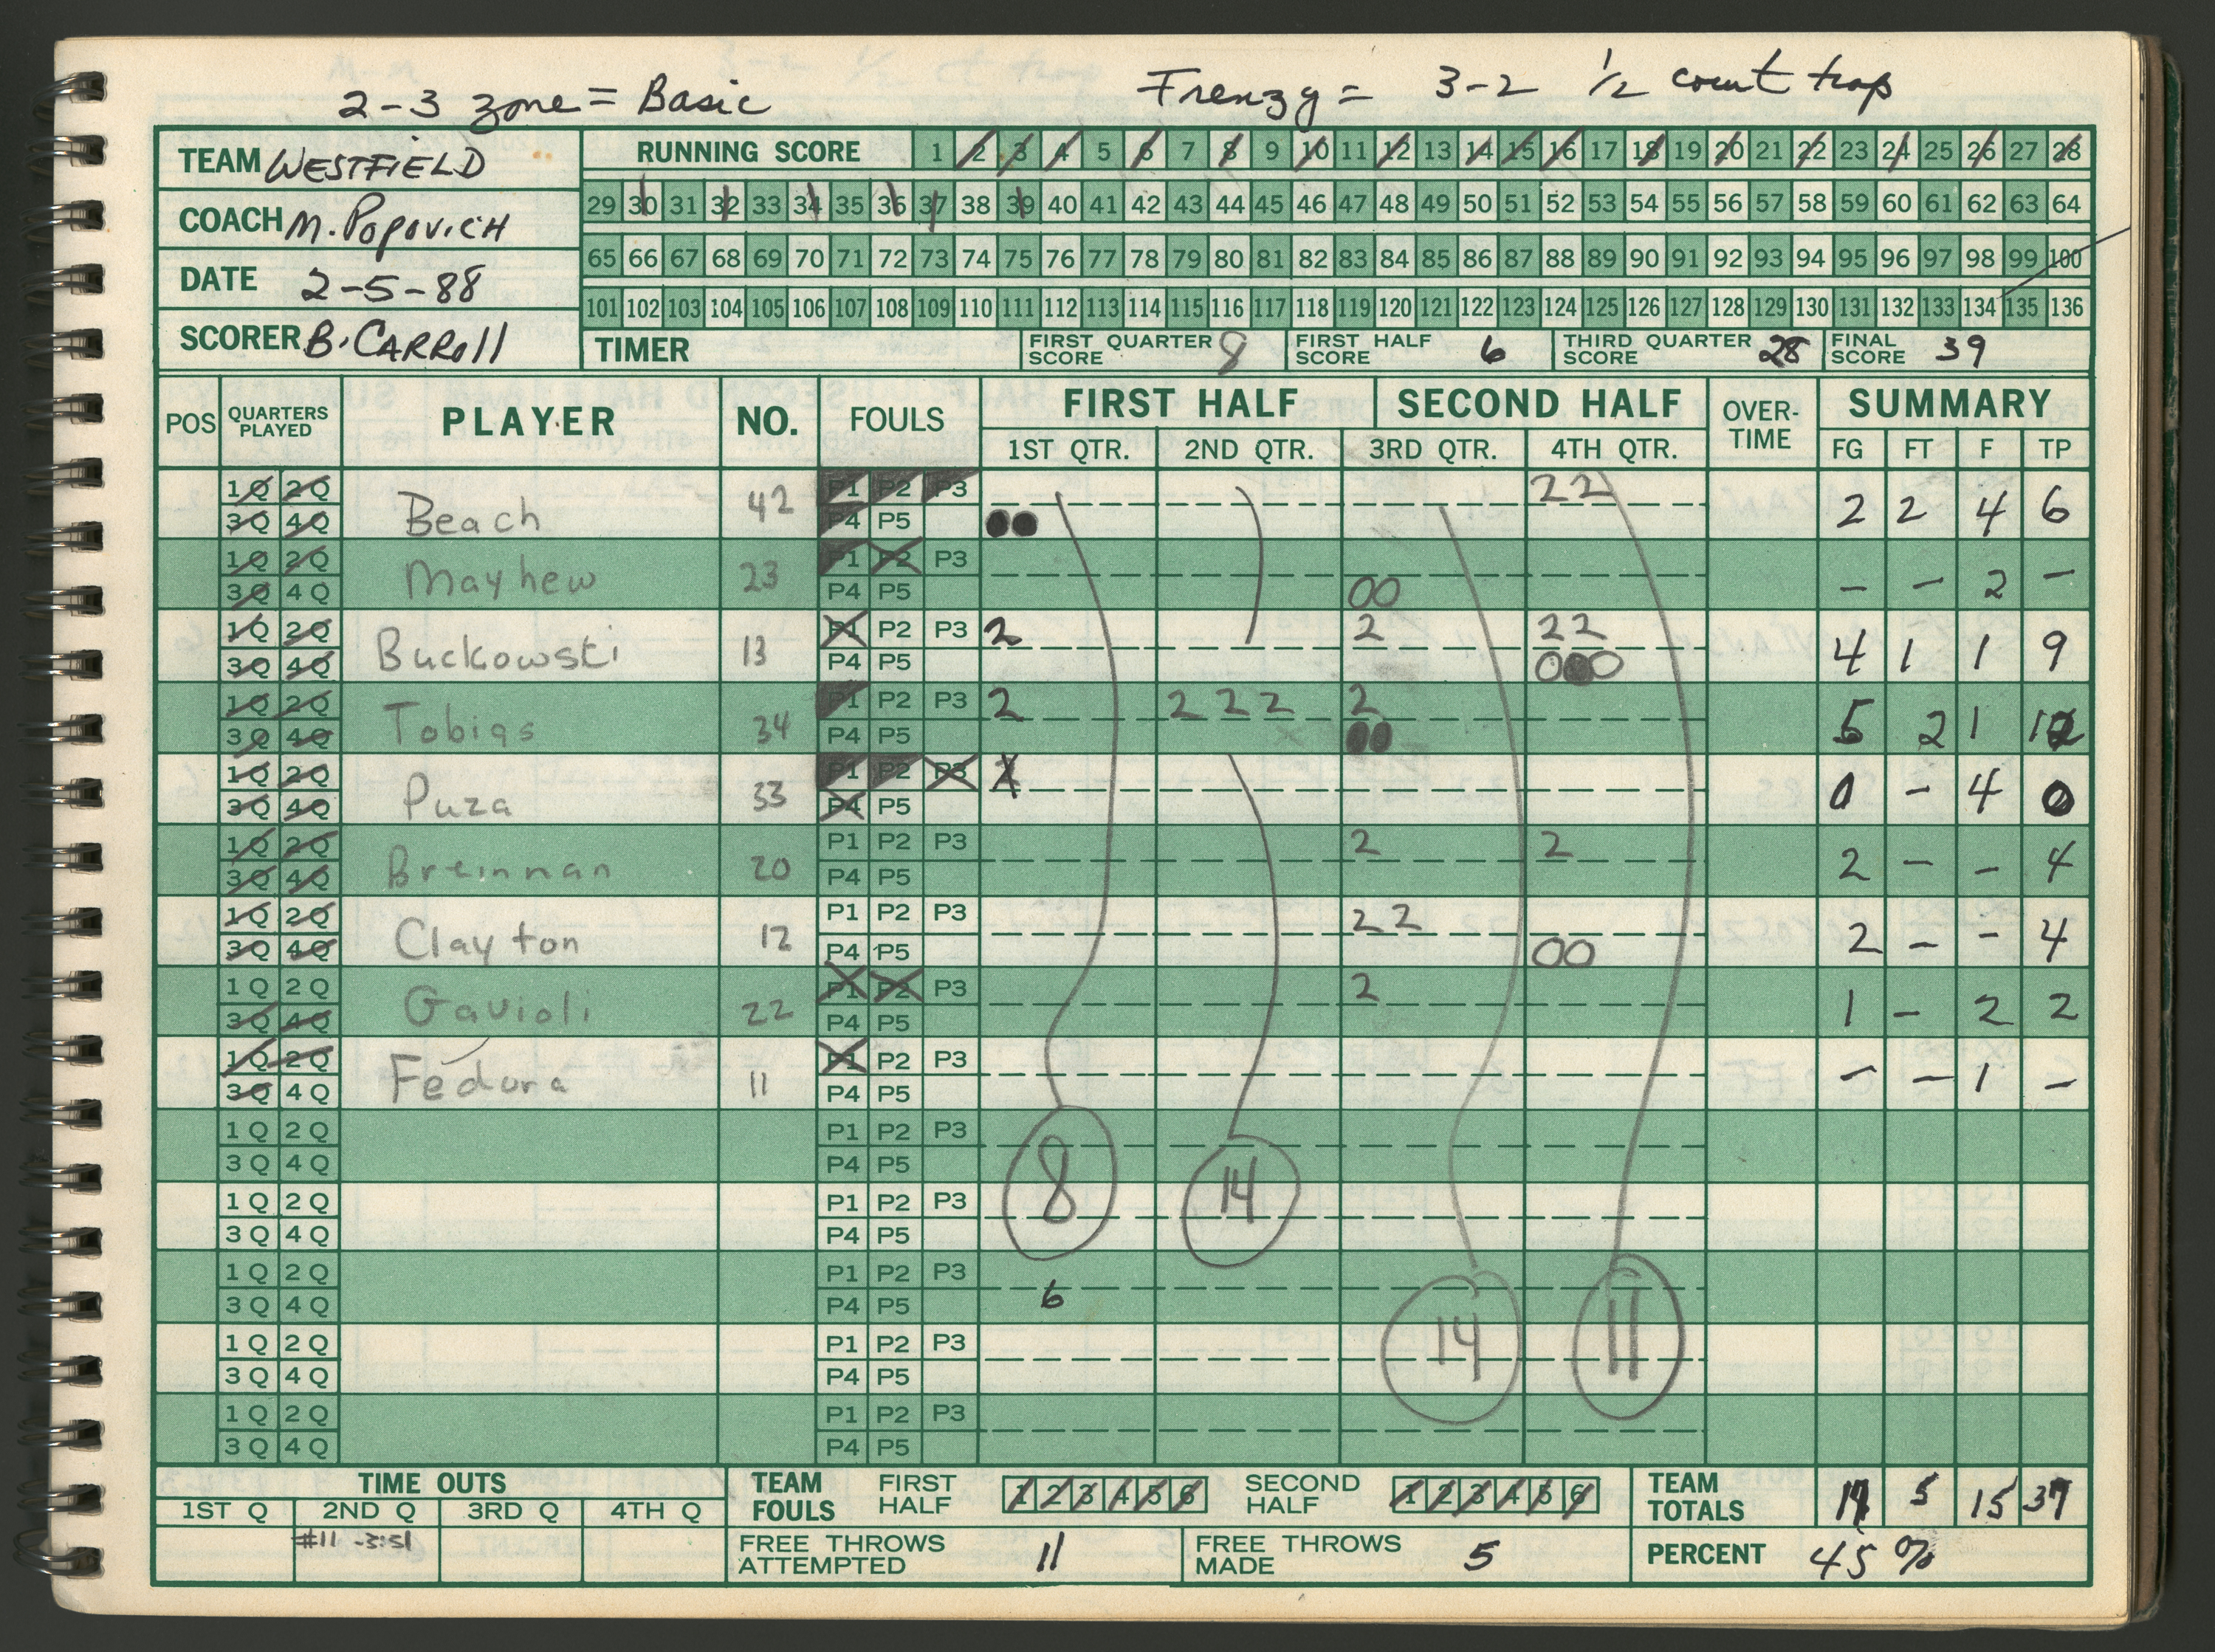 2-3 zone = Basic Frenzy = 3-2 1/2 court trap
TEAM WESTFIELD
COACH M. POPOVICH
DATE 2-5-88
SCORER B. CARROll
RUNNING SCORE 1 2 3 4 5 6 7 8 9 10 11 12 13 14 15 16 17 18 19 20 21 22 23 24 25 26 27 28
29 30 31 32 33 34 35 36 37 38 39 40 41 42 43 44 45 46 47 48 49 50 51 52 53 54 55 56 57 58 59 60 61 62 63 64
65 66 67 68 69 70 71 72 73 74 75 76 77 78 79 80 81 82 83 84 85 86 87 88 89 90 91 92 93 94 95 96 97 98 99 100
101 102 103 104 105 106 107 108 109 110 111 112 113 114 115 116 117 118 119 120 121 122 123 124 125 126 127 128 129 130 131 132 133 134 135 136
TIMER FIRST QUARTER SCORE 8 FIRST HALF SCORE 6 THIRD QUARTER SCORE 28 FINAL SCORE 39
POS QUARTERS PLAYED PLAYER NO. FOULS FIRST HALF SECOND HALF OVER-TIME SUMMARY
1ST QTR. 2ND QTR. 3RD QTR. 4TH QTR. FG FT F TP
1Q 2Q 3Q 4Q Beach 42 P1 P2 P3 P4 P5 22 2 2 4 6
1Q 2Q 3Q 4Q Mayhew 23 P1 P2 P3 P4 P5 00 - - 2 -
1Q 2Q 3Q 4Q Buckowski 13 P1 P2 P3 P4 P5 2 2 22 000 4 1 1 9
1Q 2Q 3Q 4Q Tobias 34 P1 P2 P3 P4 P5 2 2 2 2 2 5 2 1 12
1Q 2Q 3Q 4Q Puza 33 P1 P2 P3 P4 P5 0 - 4 0
1Q 2Q 3Q 4Q Breinnan 20 P1 P2 P3 P4 P5 2 2 2 - - 4
1Q 2Q 3Q 4Q Clayton 12 P1 P2 P3 P4 P5 22 00 2 - - 4
1Q 2Q 3Q 4Q Gavioli 22 P1 P2 P3 P4 P5 2 1 - 2 2
1Q 2Q 3Q 4Q Fedora 11 P1 P2 P3 P4 P5 - - 1 -
1Q 2Q 3Q 4Q P1 P2 P3 P4 P5
1Q 2Q 3Q 4Q P1 P2 P3 P4 P5 8 14
1Q 2Q 3Q 4Q P1 P2 P3 P4 P5 6
1Q 2Q 3Q 4Q P1 P2 P3 P4 P5 14 11
1Q 2Q 3Q 4Q P1 P2 P3 P4 P5
TIME OUTS TEAM FOULS FIRST HALF 1 2 3 4 5 6 SECOND HALF 1 2 3 4 5 6 TEAM TOTALS 5 15 39
1ST Q 2ND Q 3RD Q 4TH Q
#11 -3:51 FREE THROWS ATTEMPTED 11 FREE THROWS MADE 5 PERCENT 45 %